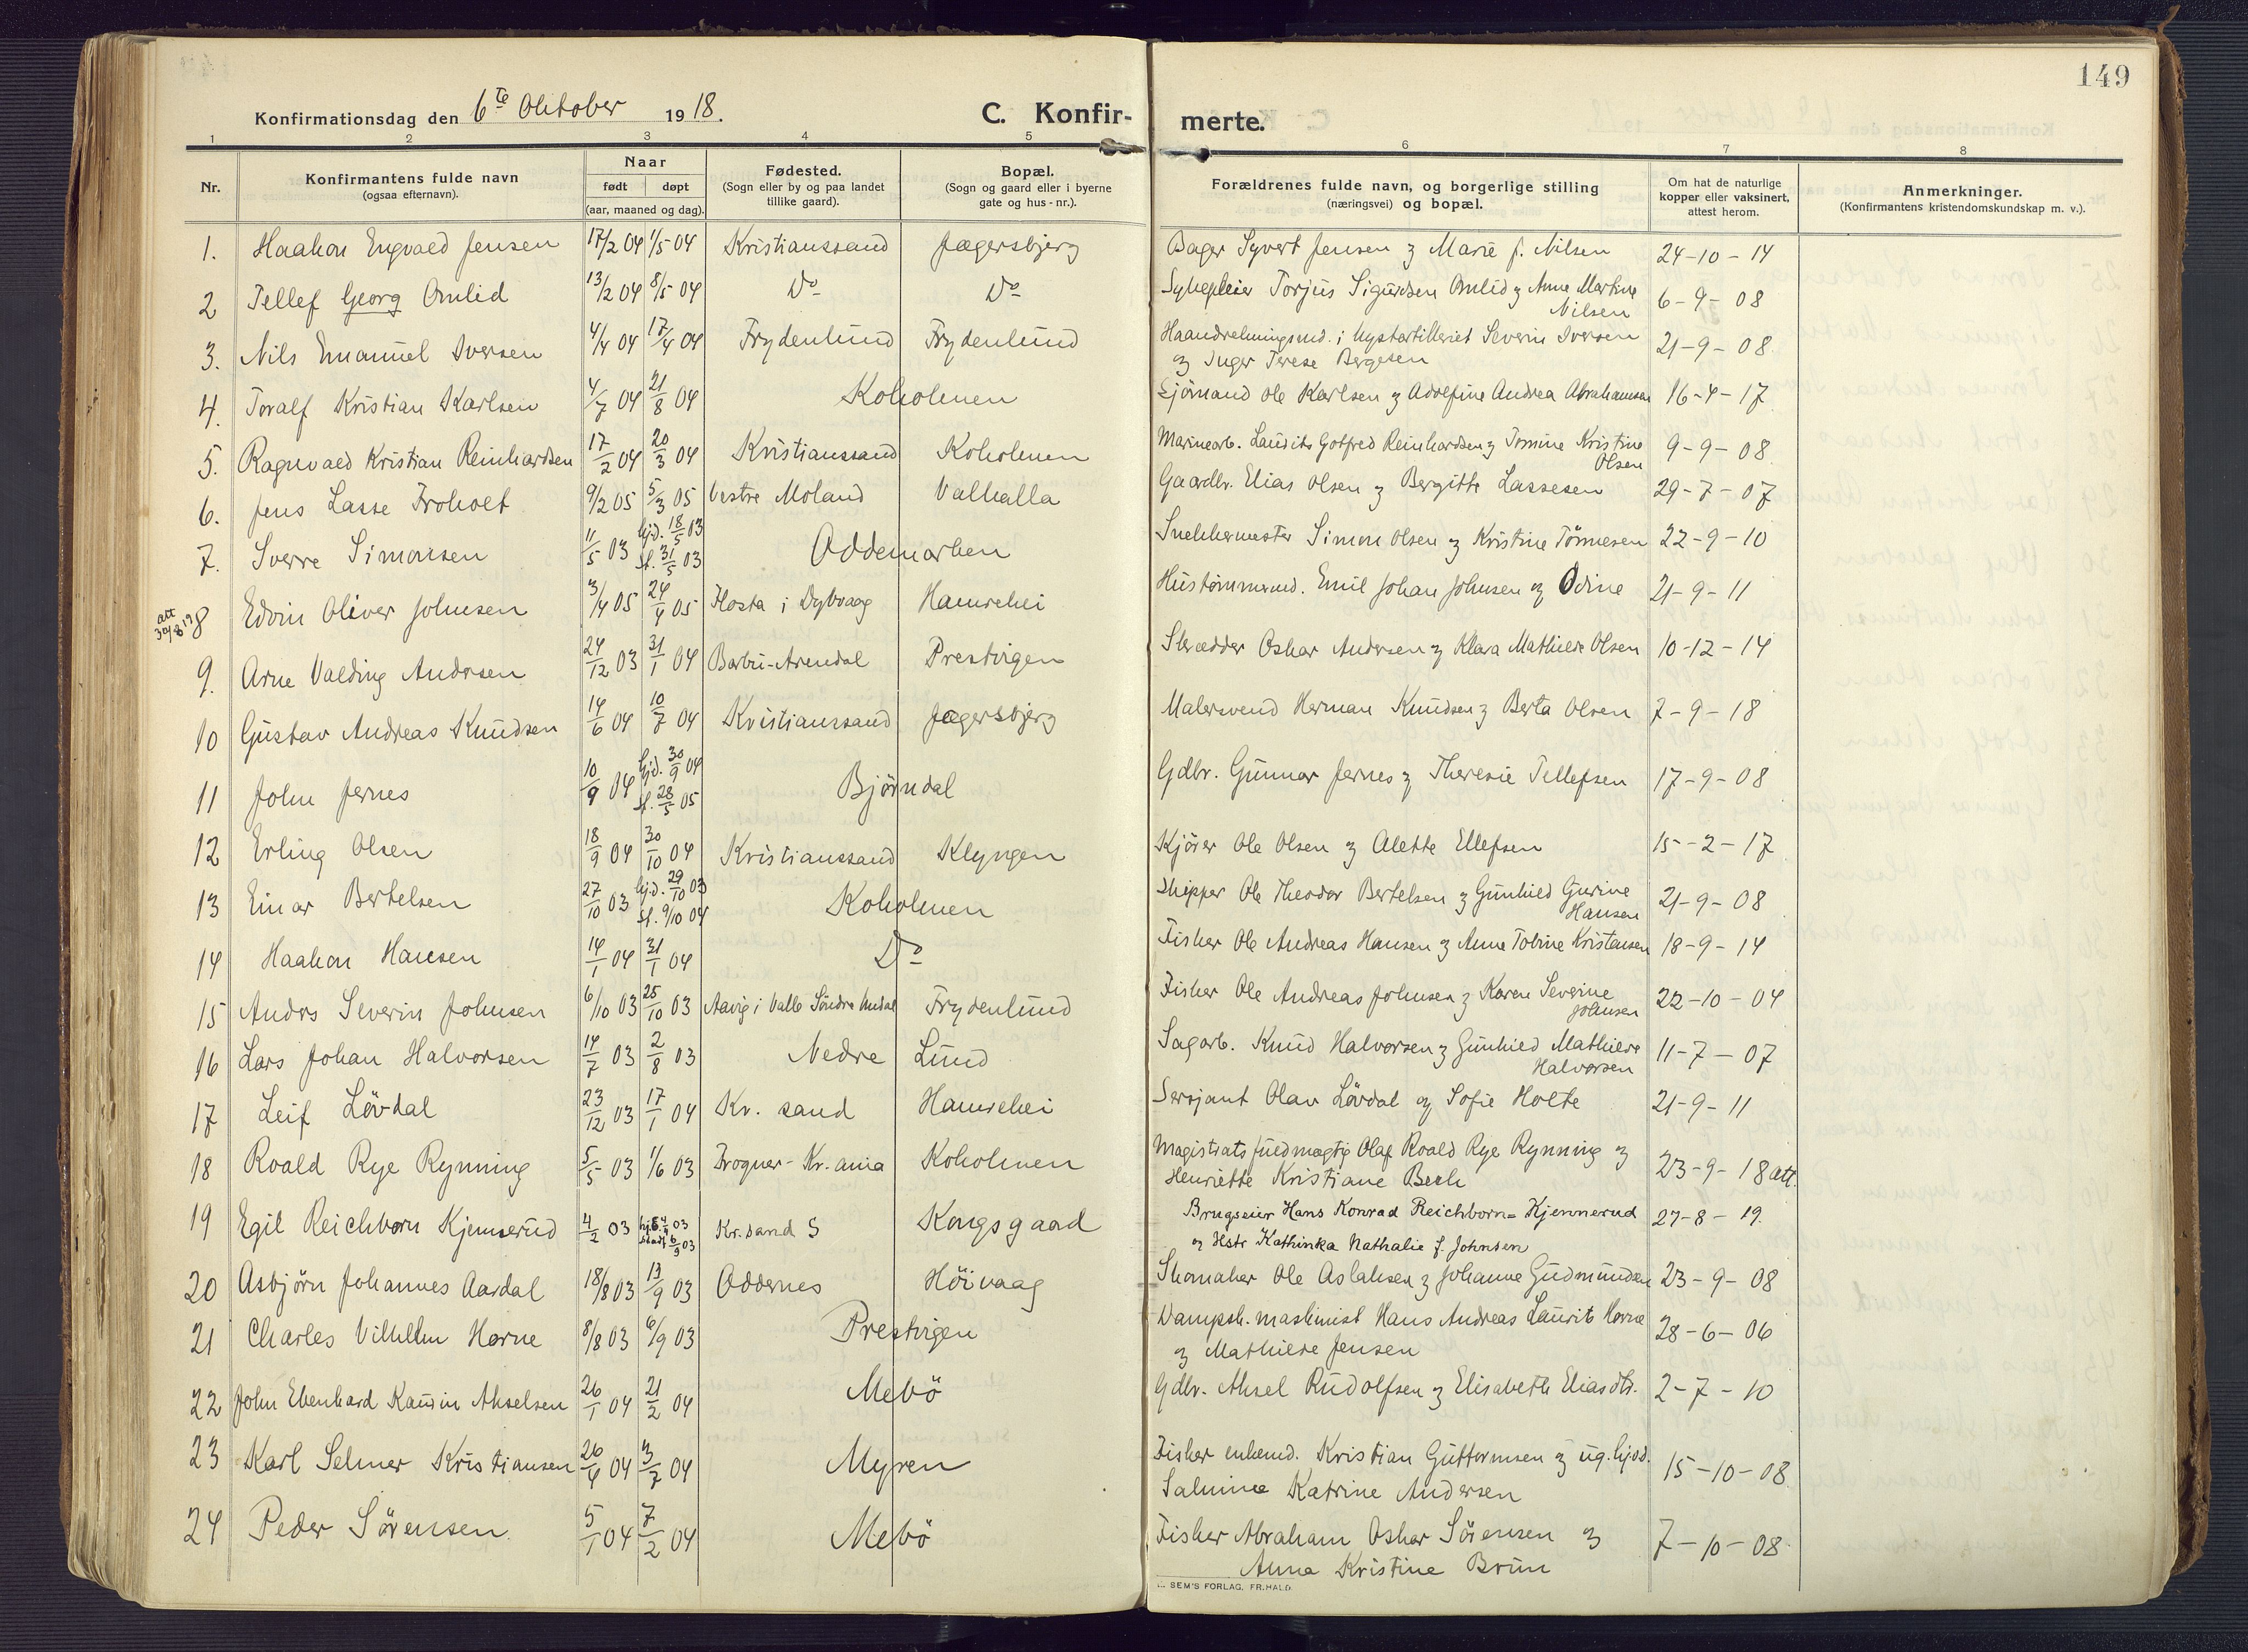 149
Konfirmationsdag den 6te Oktober 1918.
C. Konfir- merte.
1 2 3 4 5 6 7 8
Nr.
Konfirmantens fulde navn
(ogsaa efternavn).
Naar
født døpt
(aar, maaned og dag).
Fødested.
(Sogn eller by og paa landet
tillike gaard).
Bopæl.
(Sogn og gaard eller i byerne
gate og hus-nr.).
Forældrenes fulde navn, og borgerlige stilling
(næringsvei) og bopæl.
Om hat de naturlige
kopper eller vaksinert,
attest herom.
Anmerkninger.
(Konfirmantens kristendomskundskap m. v.).
1. Haakon Engvald Jensen 17/2 04 1/5 04 Kristianssand Jægersbjerg Bager Syvert Jensen og Marie f. Nilsen 24-10-14
2 Tellef Georg Omlid 13/2 04 8/5 04 Do Do Sykepleier Torjus Sigurdsen Omlid og Anne Martine
Nilsen 6-9-08
3. Nils Emanuel Iversen 4/4 04 17/4 04 Frydenlund Frydenlund Haandrekningsmd. i kystartilleriet Severin Iversen
og Inger Terese Bergesen 21-9-08
4. Toralf Kristian Karlsen 4/7 04 21/8 04 Koholmen Sjømand Ole Karlsen og Adolfine Andrea Abrahamsen 16-4-17
5. Ragnvald Kristian Reinhardsen 17/2 04 20/3 04 Kristianssand Koholmen Marinearb. Laurits Gotfred Reinhardsen og Tomine Kristine
Olsen 9-9-08
6. Jens Lasse Froholt 9/2 05 5/3 05 Vestre Moland Valhalla Gaardbr. Elias Olsen og Bergitte Lassesen 29-7-07
7. Sverre Simonsen 11/5 03 hjd. 18/5 03
st. 31/5 03 Oddemarken Snekkermester Simon Olsen og Kristine Tönnesen 22-9-10
att 30/8 19 8 Edvin Oliver Johnsen 3/4 05 24/4 05 Flosta i Dybvaag Hamrehei Hustømmermd. Emil Johan Johnsen og Odine 21-9-11
9. Arne Valding Andersen 24/12 03 31/1 04 Barbu-Arendal Prestvigen Skrædder Oskar Andersen og Klara Mathilde Olsen 10-12-14
10 Gustav Andreas Knudsen 14/6 04 10/7 04 Kristianssand Jægersbjerg Malersvend Herman Knudsen og Berta Olsen 7-9-18
11 John Jernes 10/9 04 hjd. 30/9 04
st. 28/5 05 Bjørndal Gdbr. Gunnar Jernes og Theresie Tellefsen 17-9-08
12 Erling Olsen 18/9 04 30/10 04 Kristianssand Klyngen Kjörer Ole Olsen og Alette Ellefsen 15-2-17
13 Einar Bertelsen 27/10 03 hjd. 29/10 03
st. 9/10 04 Koholmen Skipper Ole Theodor Bertelsen og Gunhild Gurine
Hansen 21-9-08
14 Haakon Hansen 14/1 04 31/1 04 Do Fisker Ole Andreas Hansen og Anne Tobine Kristensen 18-9-14
15 Anders Severin Johnsen 6/10 03 25/10 03 Aavig i Valle Söndre Undal Frydenlund Fisker Ole Andreas Johnsen og Karen Severine
Johnsen 22-10-04
16 Lars Johan Halvorsen 14/7 03 2/8 03 Nedre Lund Sagarb. Knud Halvorsen og Gunhild Mathilde
Halvorsen 11-7-07
17 Leif Lövdal 23/12 03 17/1 04 Kr. sand Hamrehei Sersjant Olav Lövdal og Sofie Holte 21-9-11
18 Roald Rye Rynning 5/5 03 1/6 03 Frogner-Kr.ania Koholmen Magistratsfuldmægtig Olaf Roald Rye Rynning og
Henriette Kristiane Bech 23-9-18 att.
19 Egil Reichborn Kjennerud 4/2 03 Kr.sand S Kongsgaard Brugseier Hans Konrad Reichborn-Kjennerud
og Hstr Kathinka Nathalie f. Johnsen 27-8-19.
20 Asbjörn Johannes Aardal 18/8 03 13/9 03 Oddernes Höivaag Skomaker Ole Aslaksen og Johanne Gudmundsen 23-9-08
21 Charles Vilhelm Horne 8/8 03 6/9 03 Prestvigen Dampsk. maskinist Hans Andreas Laurits Horne
og Mathilde Jensen 28-6-06
22 John Ebenhard Kaurin Akselsen 26/1 04 21/2 04 Mebö Gdbr. Aksel Rudolfsen og Elisabeth Eliasdtr. 2-7-10
23 Karl Selmer Kristiansen 26/4 04 3/7 04 Myren Fisker enkemd. Kristian Guttormsen og ug. hjod.
Salmine Katrine Andersen 15-10-08
24 Peder Sörensen 5/1 04 7/2 04 Mebö Fisker Abraham Oskar Sörensen og
Anna Kristine Brun 7-10-08
SEM'S FORLAG, FR.HALD.